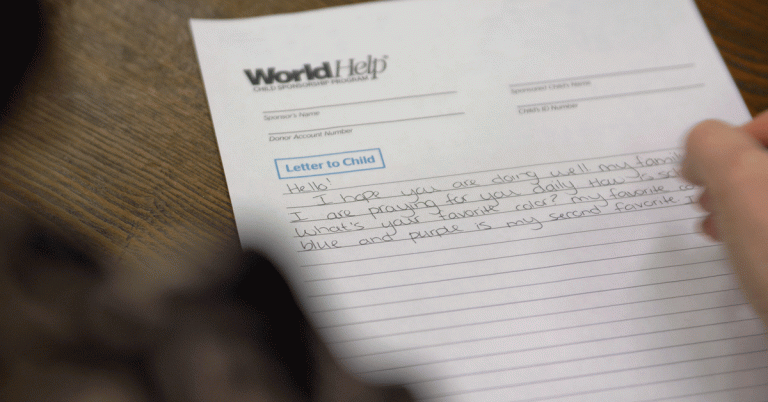 WorldHelp
CHILD SPONSORSHIP PROGRAM
Sponsor's Name
Sponsored Child's Name
Donor Account Number
Child's ID Number
Letter to Child
Hello!
I hope you are doing well my family
I are praying for you daily How is
What's your favorite color? my favorite
blue and purple is my second favorite I